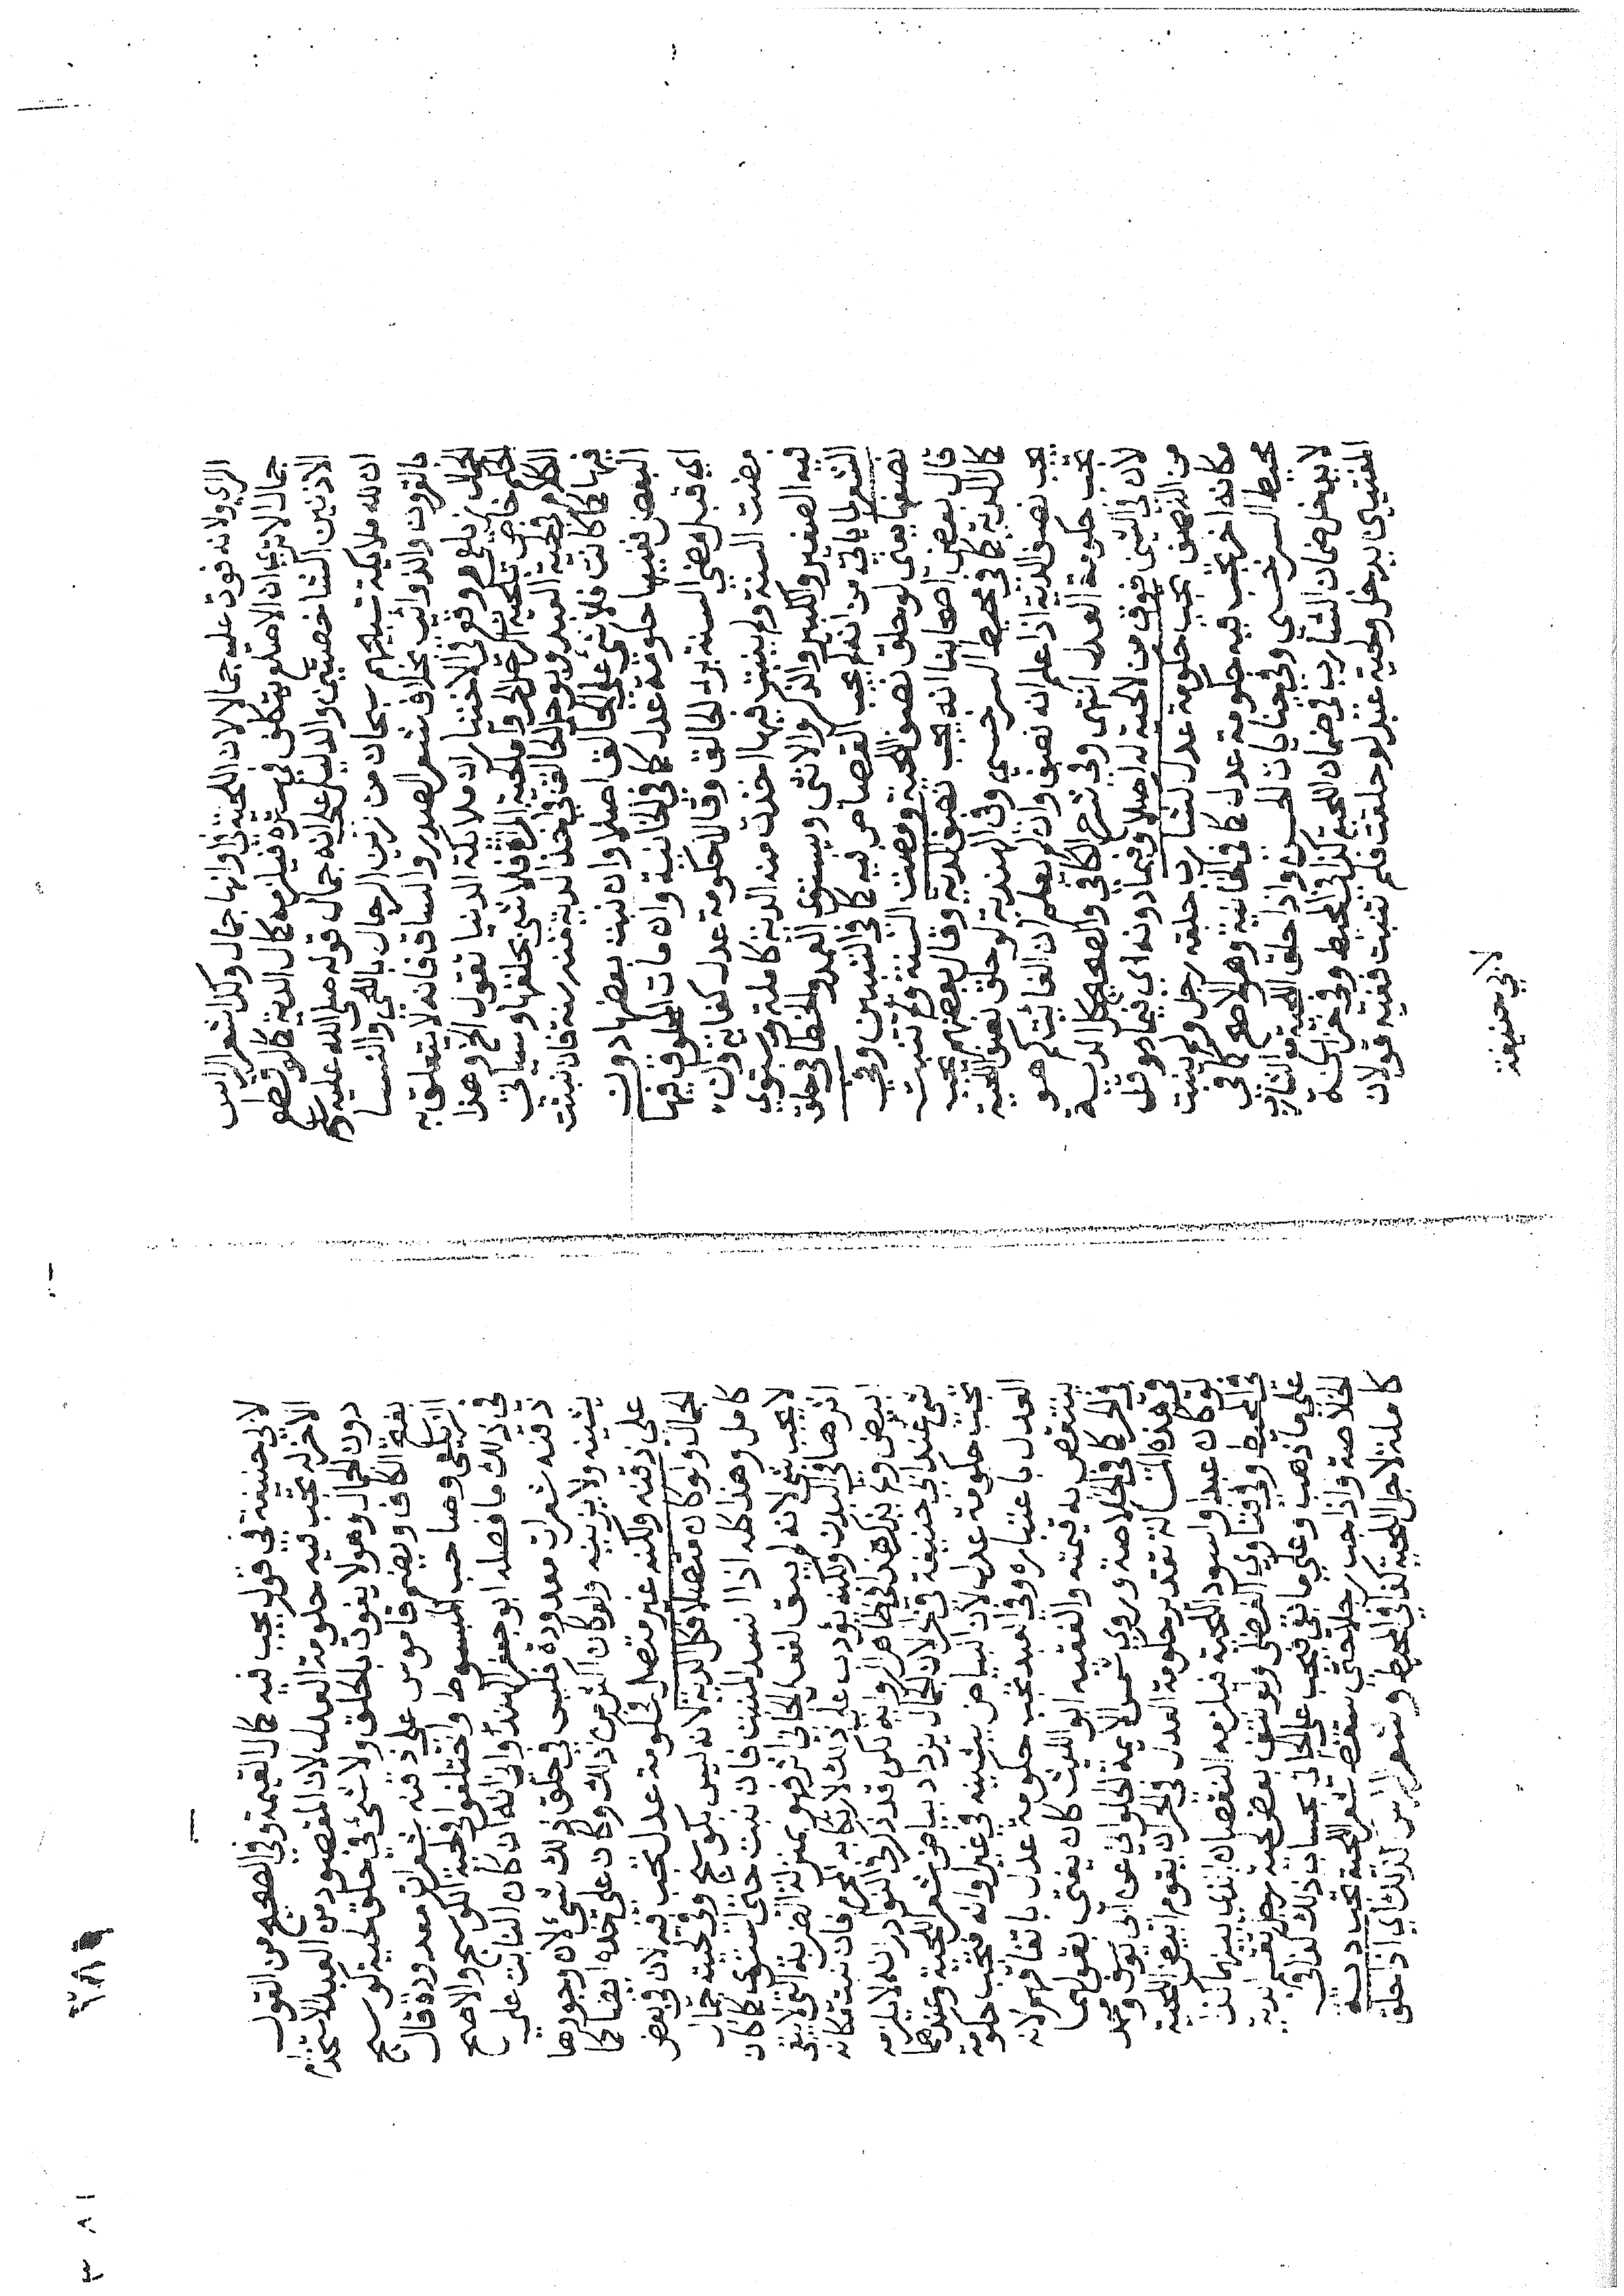 الزي ولانه فوت عليه جمالا لان اللحية في اوانها جمال وكذا شعر الراس
جمال الا تري ان الاصلع يتكلف في ستره فيلزمه كمال الدية كما لو قطع
الاذنين الشاخصتين والدليل علي انه جمال قوله صلي الله عليه وسلم
ان لله ملايكة تسبيحهم سبحان من زين الرجال باللحى والنسا
بالقرون والذوائب بخلاف شعر الصدر والساق فانه لا يتعلق به
الجمال زيلعي ووقع في الاختيار ان ملايكة الدنيا تقول الخ وهذا
الحكم خاص بلحية الرجل اما لحية المراة فلا شي بحلقها وسياتي
الكلام في لحية العبد ويوجل الحالق في اخذ الدية منه سنة فان نبتت
فيها كما كانت فلا شي علي الحالق اصلا وان نبتت بعضها دون
البعض ففيها حكومة عدل كما في الخانية وان مات المحلوق فيها
اي قبل مضي السنة بري الحالق وقالا حكومة عدل كفاية وان
مضت السنة ولم ينبت فيها اخذت منه الدية كاملة ويستوي
فيه الصغير والكبير والذكر والانثى ويستوي العمد والخطا في حلق
الشعر لما ياتي من انه لم يجب القصاص فيه كما في التبيين وفي
نصفها يعني لو حلق نصف اللحية ومضت السنة ولم تنبت
قال بعض اصحابنا انه يجب نصف الدية وقال بعضهم يجب
كمال الدية كما في محيط السرخسي وفي الهندية لو حلق بعض اللحية
يجب نصف الدية اذا علم انه نصف وان لم يعلم ان الفائت كم هو
تجب حكومة العدل انتهى وفي شرح الكافي والصحيح كمال الدية
لان في الشين فوق من لا لحية له اصلا وفيما دونه اي فيما هو اقل
من النصف يجب حكومة عدل شارب حلقه رجل ولم ينبت
مكانه اخر يجب فيه حكومة عدل كما في الخانية وهو الاصح كما في
محيط السرخسي وفي جنايات الحسن واذا حلق اللحية مع الشارب
لا يدخل ضمان الشارب في ضمان اللحية كذا في المحيط وفي خزانة
المفتيين يدخل ولحية عبد لو حلقت فلم تنبت ففيه قولان
لابي حنيفة
لابي حنيفة في قول يجب فيه كمال القيمة وفي الصحيح من القول
الاخر له يجب فيه حكومة العدل لان المقصود من العبد الاستخدام
دون الجمال وهو لا يفوت بالحلق ولا شي في حلق لحية كوسج
بفتح الكاف ويضم قاموس علي ذقنه شعرات معدودة قال
الزيلعي وصاحب المبسوط واختلفوا في لحية الكوسج والاصح
في ذلك ما فصله ابو جعفر الهندواني انه ان كان النابت علي
ذقنه شعرات معدودة فليس في حلق ذلك شي لان وجودها
يشينه ولا يزينه ولو كان اكثر من ذلك وكان علي خده ايضا كما
علي ذقنه ولكنه غير متصل فحكومة عدل تجب فيه لان في بعض
الجمال ولو كان متصلا فكل الدية لانه ليس بكوسج وفي لحيته جمال
كامل وهذا كله اذا انسد المنبت فان نبت حتى استوى كما كان
لا يجب شي لانه لم يبق لفعل الجاني اثر فهو بمنزلة الضربة التي لا يبقى
اثرها في البدن ولكنه يؤدب علي ذلك لارتكابه المحرم فان نبت مكانه
ابيض ولم يذكر هذا في ظاهر الرواية لكن قد ذكر في النوادر انه لا يلزمه
شي عند ابي حنيفة في الحر لان الجمال يزداد ببياض شعر اللحية وعندهما
تجب حكومة عدل لان البياض يشينه في غير اوانه فتجب حكومة
العدل باعتباره وفي العبد تجب حكومة عدل باتفاقهم لانه
ينتقص به قيمته والفقيه ابو الليث كان يفتي بقولهما
في الحر كما في الخلاصة وروي شمس الايمة الحلواني عن ابي يوسف ومحمد
في هذه المسالة تقدير حكومة العدل في الحر ان يقوم ابيض اللحية
لو كان عبدا واسود اللحية فيلزمه النقصان الذي بينهما كذا
في المحيط وفي فتاوي الفضلي ولو نتف بعض لحية رجل تقسم الدية
علي ما ذهب وعلي ما بقي فيجب علي الجاني بحساب ذلك كذا في
الخلاصة واذا جب رجلا حتي سقط شعر اللحية تجب دية
كاملة لاجل اللحية كذا في المحيط وشعر الراس كذلك اي اذا حلق